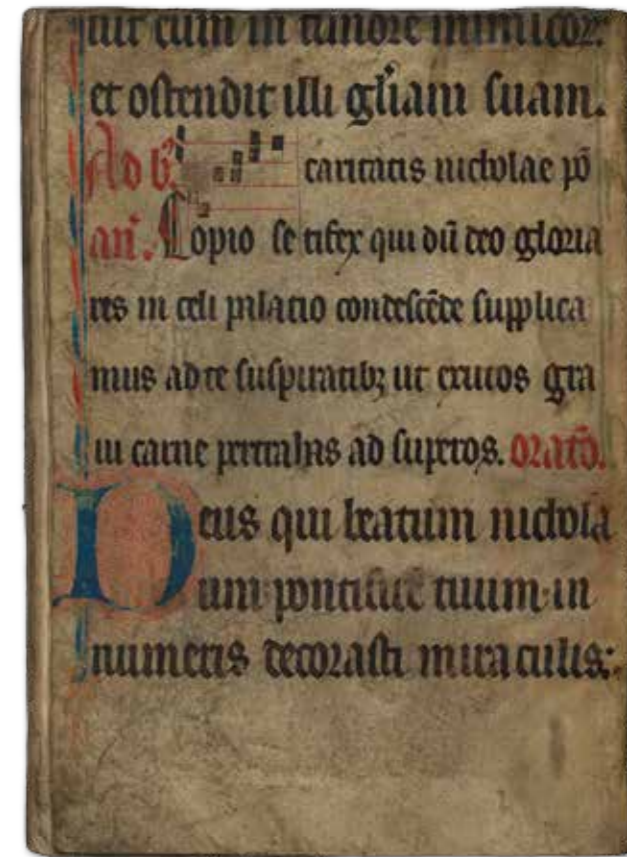 uit eum in timore inimicoꝝ.
et ostendit illi gl̄iam suam.
Ad b̄ caritatis nicholae pō
an̄. Copio se tifex qui dū deo gloria
res in celi palacio condescēde supplica
mus ad te suspirātibꝫ ut exutos gra
ui carne pertrahas ad superos. oratō.
Deus qui beatum nichola
um pontificē tuum in
numeris decorasti miraculis: